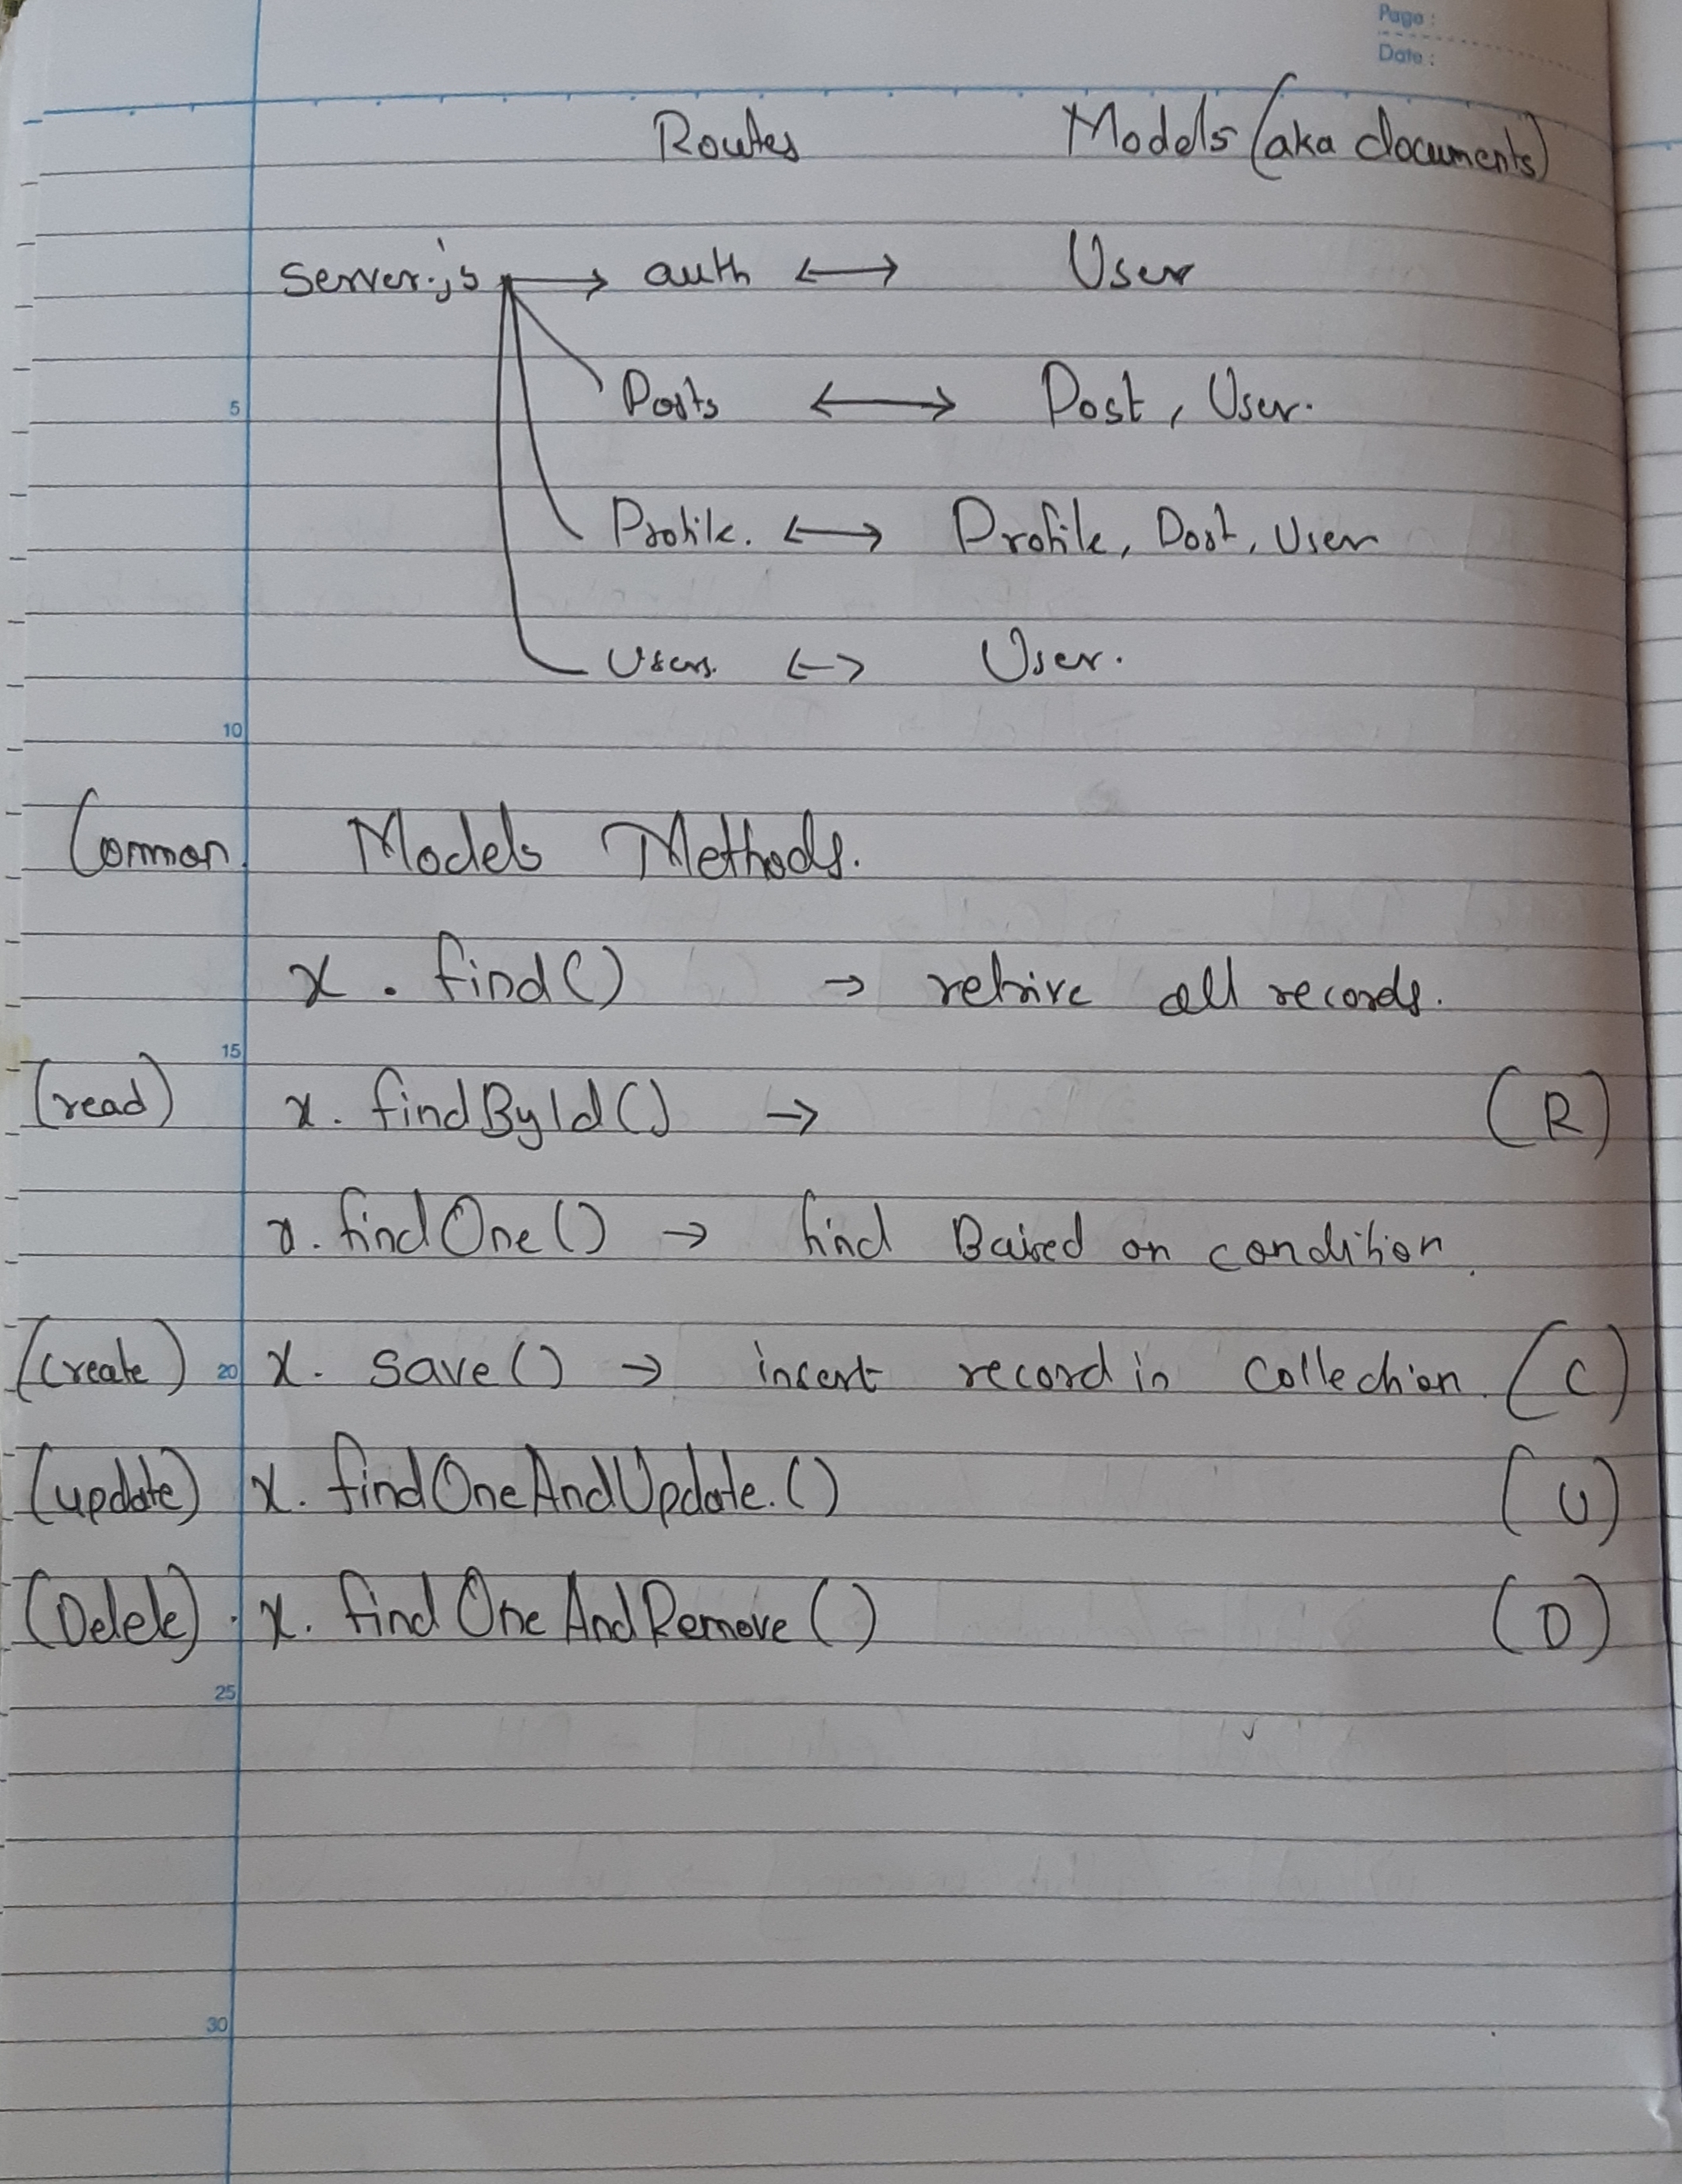 Page :
Date :
Routes Models (aka documents)
Server.js → auth ↔ User
Posts ↔ Post, User.
5
Profile. ↔ Profile, Post, User
Users. ↔ User.
10
Common Models Methods.
x . find() → retrive all records.
15
(read) x. findById() → (R)
x. findOne() → find Baised on condition.
(create) 20 x. save() → insert record in Collection. (C)
(update) x. findOneAndUpdate.() (U)
(Delete) . x. findOneAndRemove() (D)
25
30